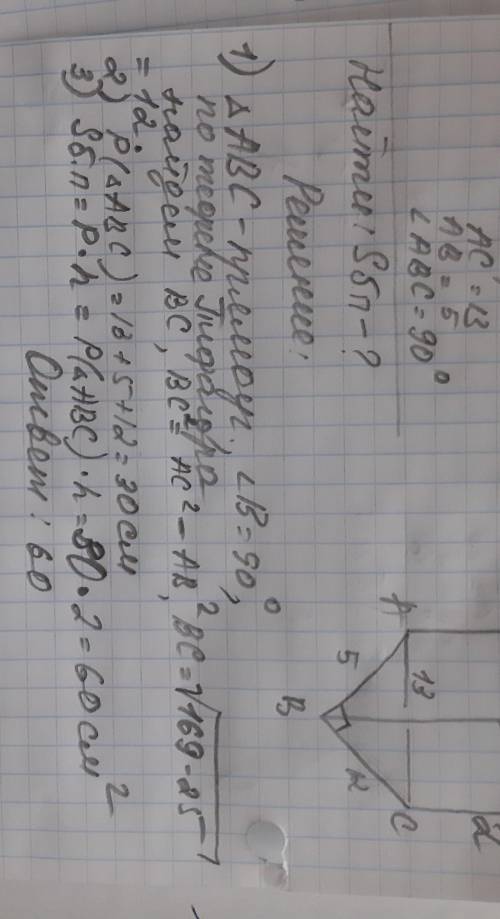 AC = 13
AB = 5
∠ABC = 90°
Найти: Sбп - ?
Решение:
1) △ABC - прямоуг. ∠B = 90°,
по теореме Пифагора
найдем BC, BC² = AC² - AB², BC = √169-25 =
= 12.
2) P(△ABC) = 13 + 5 + 12 = 30 см
3) Sбп = P · h = P(△ABC) · h = 30 · 2 = 60 см²
Ответ: 60
A
13
C
5
B
2